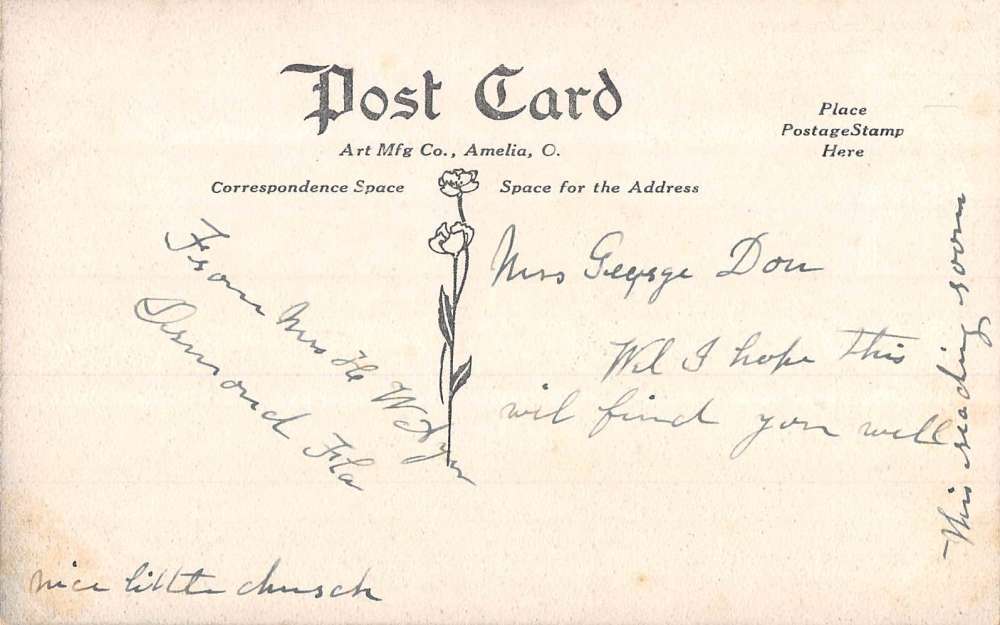 Post Card
Art Mfg Co., Amelia, O.
Place
Postage Stamp
Here
Correspondence Space
Space for the Address
From Mrs H W
Ormond Fla
Mrs George Dow
Wel I hope this
wil find you well
This reading soon
nice little church